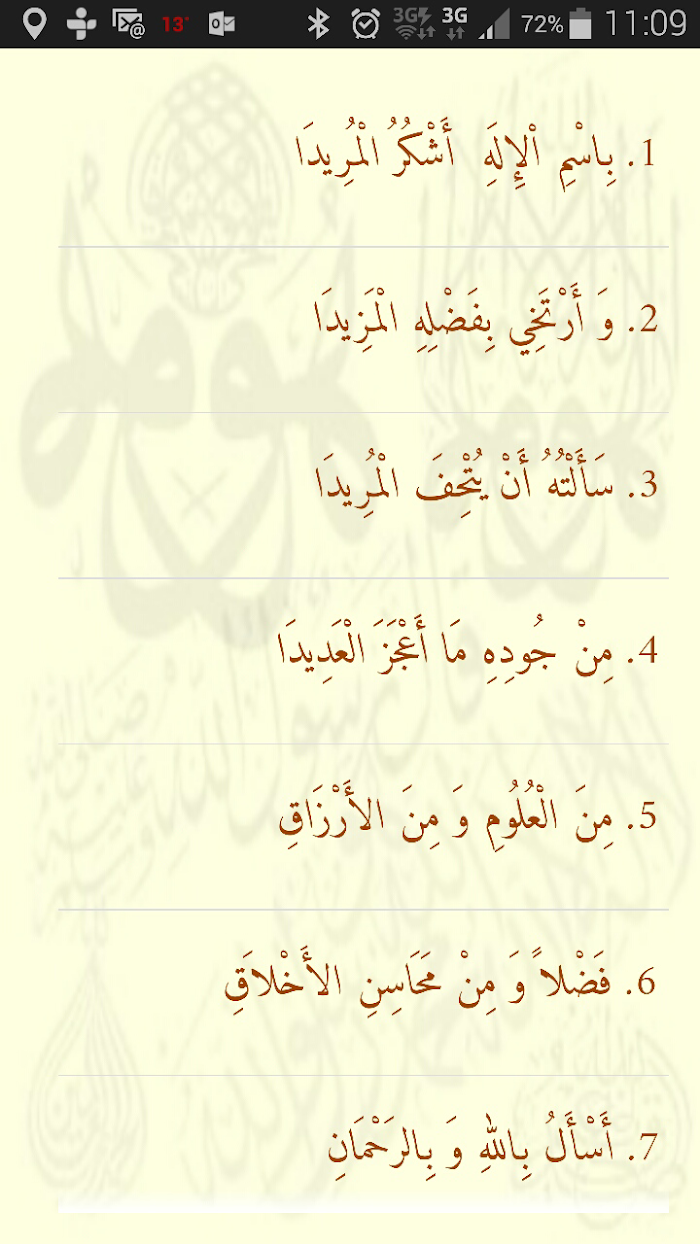 13° 3G 3G 72% 11:09
1. بِاسْمِ اْلإِلَهِ أَشْكُرُ الْمُرِيدَا
2. وَ أَرْتَجِي بِفَضْلِهِ الْمَزِيدَا
3. سَأَلْتُهُ أَنْ يُتْحِفَ الْمُرِيدَا
4. مِنْ جُودِهِ مَا أَعْجَزَ الْعَدِيدَا
5. مِنَ الْعُلُومِ وَ مِنَ الأَرْزَاقِ
6. فَضْلاً وَ مِنْ مَحَاسِنِ الأَخْلاَقِ
7. أَسْأَلُ بِاللهِ وَ بِالرَحْمَانِ